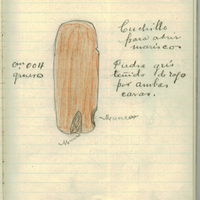 Cuchillo
para abrir
mariscos
cm 004
grueso
Piedra gris
teñido de rojo
por ambas
caras.
Muescas